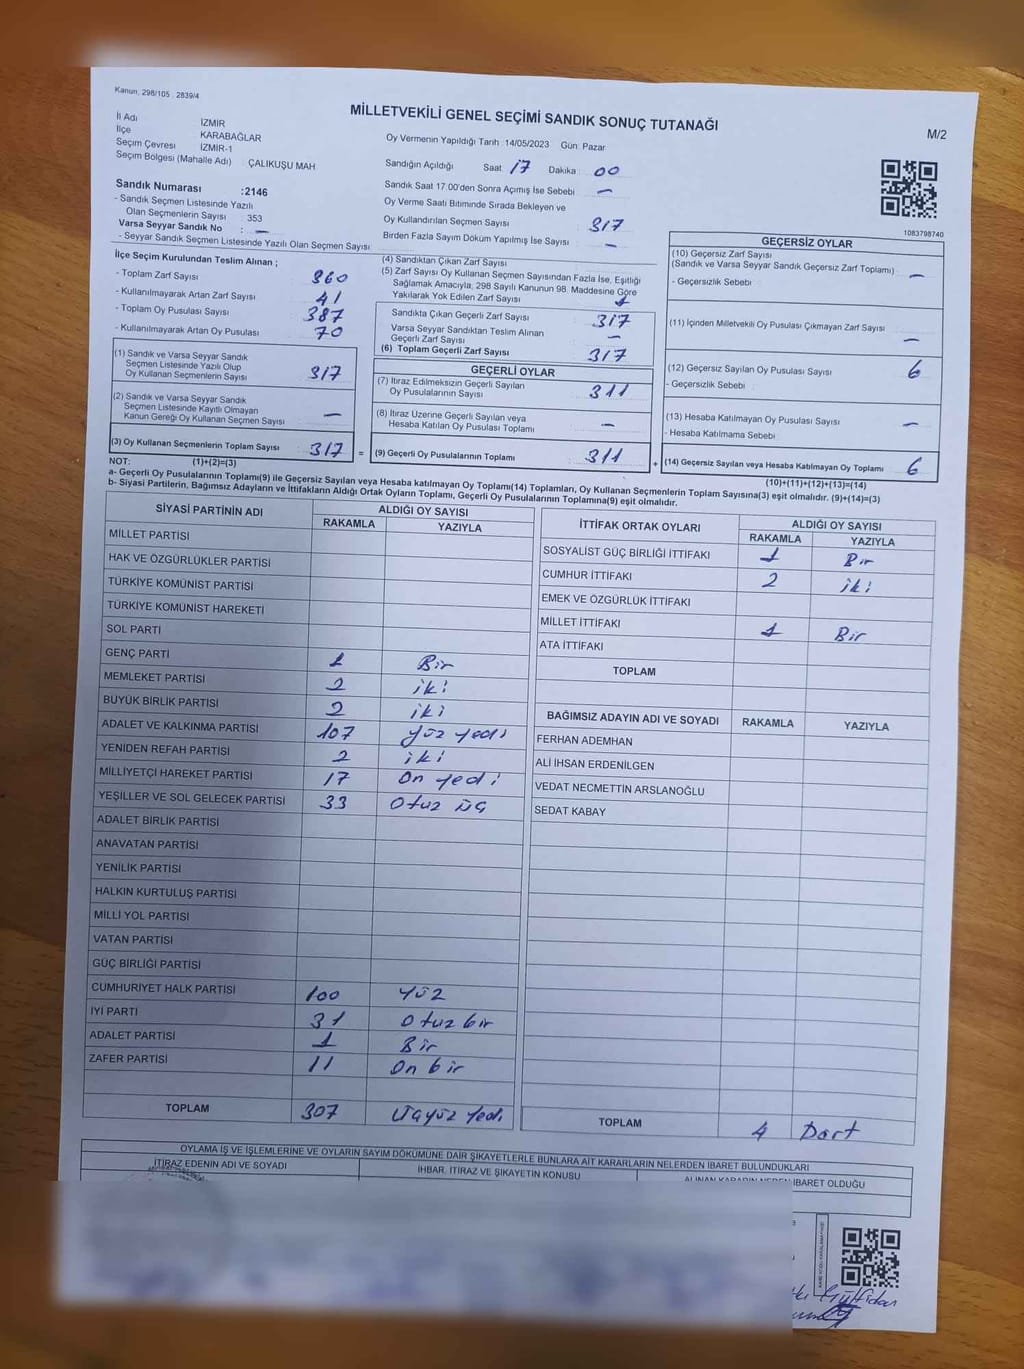 Kanun: 298/105 : 2839/4
MİLLETVEKİLİ GENEL SEÇİMİ SANDIK SONUÇ TUTANAĞI
M/2
İl Adı İZMİR
İlçe KARABAĞLAR
Seçim Çevresi İZMİR-1
Seçim Bölgesi (Mahalle Adı) : ÇALIKUŞU MAH
Sandık Numarası :2146
- Sandık Seçmen Listesinde Yazılı
Olan Seçmenlerin Sayısı : 353
Varsa Seyyar Sandık No : —
- Seyyar Sandık Seçmen Listesinde Yazılı Olan Seçmen Sayısı
Oy Vermenin Yapıldığı Tarih :14/05/2023 Gün: Pazar
Sandığın Açıldığı Saat 17 Dakika 00
Sandık Saat 17:00'den Sonra Açımış İse Sebebi —
Oy Verme Saati Bitiminde Sırada Bekleyen ve
Oy Kullandırılan Seçmen Sayısı 317
Birden Fazla Sayım Döküm Yapılmış İse Sayısı —
1083798740
İlçe Seçim Kurulundan Teslim Alınan ;
- Toplam Zarf Sayısı 360
- Kullanılmayarak Artan Zarf Sayısı 41
- Toplam Oy Pusulası Sayısı 387
- Kullanılmayarak Artan Oy Pusulası 70
(1) Sandık ve Varsa Seyyar Sandık
Seçmen Listesinde Yazılı Olup
Oy Kullanan Seçmenlerin Sayısı 317
(2) Sandık ve Varsa Seyyar Sandık
Seçmen Listesinde Kayıtlı Olmayan
Kanun Gereği Oy Kullanan Seçmen Sayısı —
(3) Oy Kullanan Seçmenlerin Toplam Sayısı 317 =
(4) Sandıktan Çıkan Zarf Sayısı
(5) Zarf Sayısı Oy Kullanan Seçmen Sayısından Fazla İse, Eşitliği
Sağlamak Amacıyla, 298 Sayılı Kanunun 98. Maddesine Göre
Yakılarak Yok Edilen Zarf Sayısı
Sandıkta Çıkan Geçerli Zarf Sayısı 317
Varsa Seyyar Sandıktan Teslim Alınan
Geçerli Zarf Sayısı —
(6) Toplam Geçerli Zarf Sayısı 317
GEÇERLİ OYLAR
(7) İtiraz Edilmeksizin Geçerli Sayılan
Oy Pusulalarının Sayısı 311
(8) İtiraz Üzerine Geçerli Sayılan veya
Hesaba Katılan Oy Pusulası Toplamı —
(9) Geçerli Oy Pusulalarının Toplamı 311 +
GEÇERSİZ OYLAR
(10) Geçersiz Zarf Sayısı
(Sandık ve Varsa Seyyar Sandık Geçersiz Zarf Toplamı) —
- Geçersizlik Sebebi :
(11) İçinden Milletvekili Oy Pusulası Çıkmayan Zarf Sayısı —
(12) Geçersiz Sayılan Oy Pusulası Sayısı 6
- Geçersizlik Sebebi :
(13) Hesaba Katılmayan Oy Pusulası Sayısı —
- Hesaba Katılmama Sebebi :
(14) Geçersiz Sayılan veya Hesaba Katılmayan Oy Toplamı 6
NOT: (1)+(2)=(3) (10)+(11)+(12)+(13)=(14)
a- Geçerli Oy Pusulaların Toplamı(9) ile Geçersiz Sayılan veya Hesaba katılmayan Oy Toplamı(14) Toplamları, Oy Kullanan Seçmenlerin Toplam Sayısına(3) eşit olmalıdır. (9)+(14)=(3)
b- Siyasi Partilerin, Bağımsız Adayların ve İttifakların Aldığı Ortak Oyların Toplamı, Geçerli Oy Pusulalarının Toplamına(9) eşit olmalıdır.
SİYASİ PARTİNİN ADI ALDIĞI OY SAYISI
RAKAMLA YAZIYLA
MİLLET PARTİSİ
HAK VE ÖZGÜRLÜKLER PARTİSİ
TÜRKİYE KOMÜNİST PARTİSİ
TÜRKİYE KOMÜNİST HAREKETİ
SOL PARTİ
GENÇ PARTİ 1 Bir
MEMLEKET PARTİSİ 2 iki
BÜYÜK BİRLİK PARTİSİ 2 iki
ADALET VE KALKINMA PARTİSİ 107 yüz yedi
YENİDEN REFAH PARTİSİ 2 iki
MİLLİYETÇİ HAREKET PARTİSİ 17 On yedi
YEŞİLLER VE SOL GELECEK PARTİSİ 33 Otuz üç
ADALET BİRLİK PARTİSİ
ANAVATAN PARTİSİ
YENİLİK PARTİSİ
HALKIN KURTULUŞ PARTİSİ
MİLLİ YOL PARTİSİ
VATAN PARTİSİ
GÜÇ BİRLİĞİ PARTİSİ
CUMHURİYET HALK PARTİSİ 100 Yüz
İYİ PARTİ 31 Otuz bir
ADALET PARTİSİ 1 Bir
ZAFER PARTİSİ 11 On bir
TOPLAM 307 Üçyüz Yedi
İTTİFAK ORTAK OYLARI ALDIĞI OY SAYISI
RAKAMLA YAZIYLA
SOSYALİST GÜÇ BİRLİĞİ İTTİFAKI 1 Bir
CUMHUR İTTİFAKI 2 iki
EMEK VE ÖZGÜRLÜK İTTİFAKI
MİLLET İTTİFAKI 1 Bir
ATA İTTİFAKI
TOPLAM
BAĞIMSIZ ADAYIN ADI VE SOYADI RAKAMLA YAZIYLA
FERHAN ADEMHAN
ALİ İHSAN ERDENİLGEN
VEDAT NECMETTİN ARSLANOĞLU
SEDAT KABAY
TOPLAM 4 Dört
OYLAMA İŞ VE İŞLEMLERİNE VE OYLARIN SAYIM DÖKÜMÜNE DAİR ŞİKAYETLERLE BUNLARA AİT KARARLARIN NELERDEN İBARET BULUNDUKLARI
İTİRAZ EDENİN ADI VE SOYADI İHBAR, İTİRAZ VE ŞİKAYETİN KONUSU ALINAN KARARIN NEDEN İBARET OLDUĞU